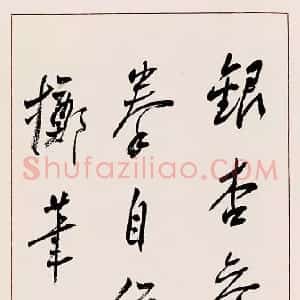 銀杏
拳自
擲筆
Shufaziliao.com